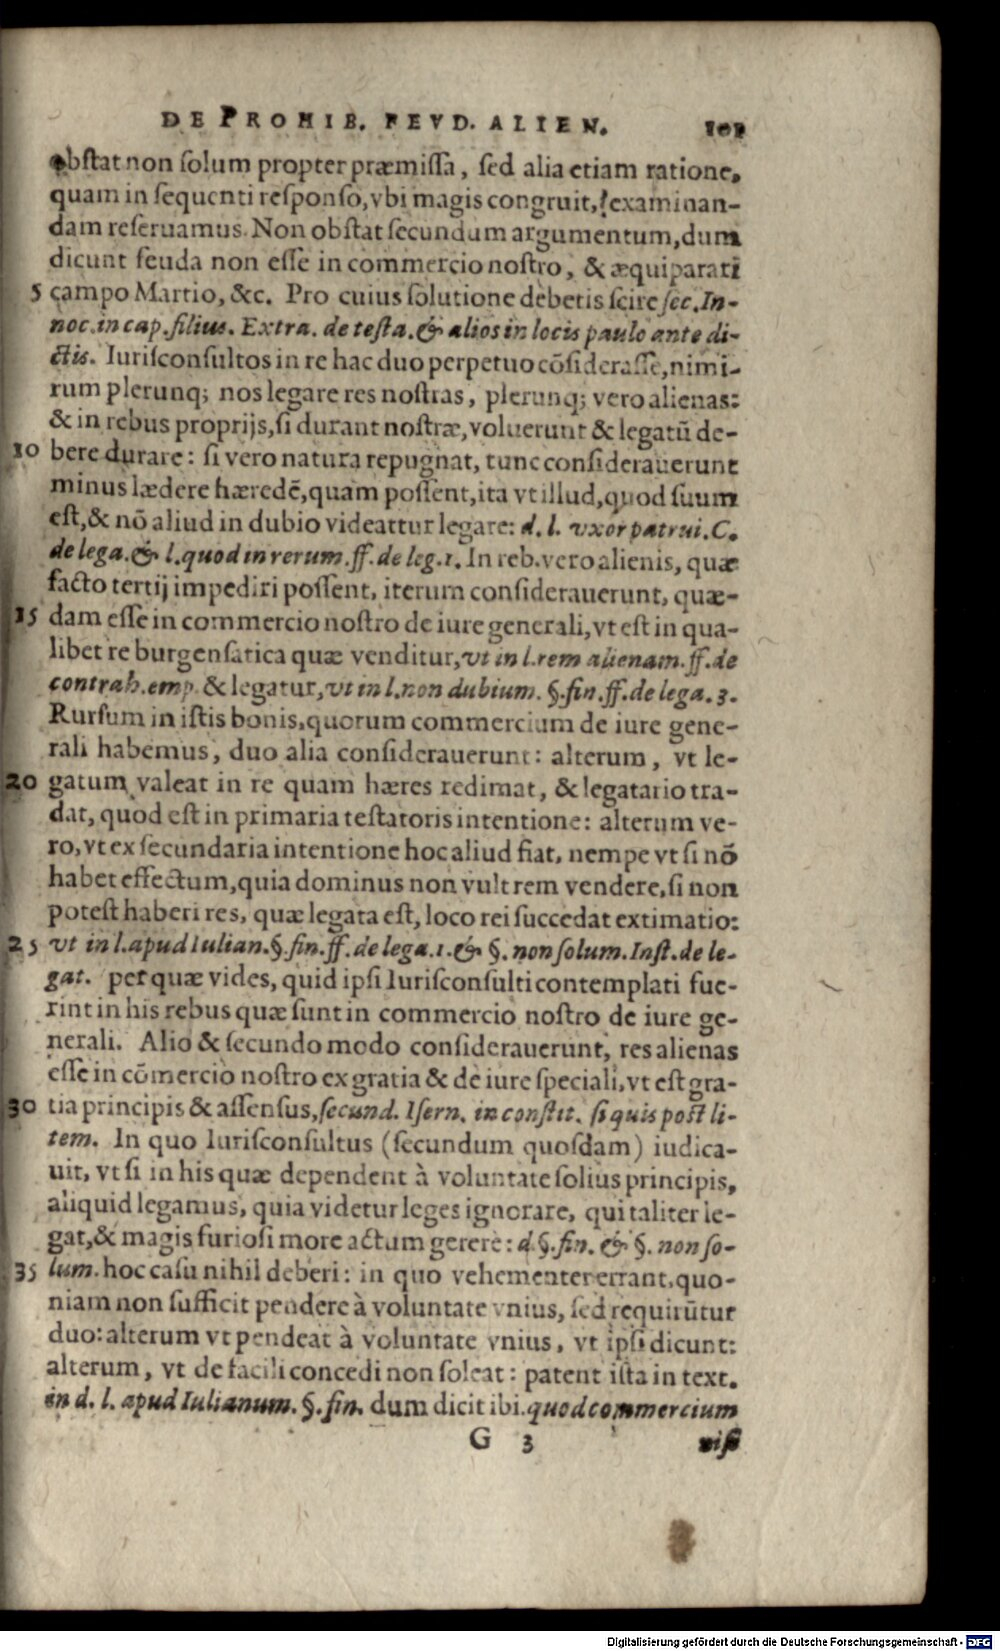 DE PROHIB. FEVD. ALIEN. 101
obstat non solum propter præmissa, sed alia etiam ratione,
quam in sequenti responso, vbi magis congruit, examinan-
dam reseruamus. Non obstat secundum argumentum, dum
dicunt feuda non esse in commercio nostro, & æquiparari
5 campo Martio, &c. Pro cuius solutione debetis scire sec. In-
noc. in cap. filius. Extra. de testa. & alios in locis paulo ante di-
ctis. Iurisconsultos in re hac duo perpetuo cōsiderasse, nimi-
rum plerunq; nos legare res nostras, plerunq; vero alienas:
& in rebus proprijs, si durant nostræ, voluerunt & legatū de-
10 bere durare: si vero natura repugnat, tunc considerauerunt
minus lædere hæredē, quam possent, ita vt illud, quod suum
est, & nō aliud in dubio videattur legare: d. l. vxor patrui. C.
de lega. & l. quod in rerum. ff. de leg. 1. In reb. vero alienis, quæ
facto tertij impediri possent, iterum considerauerunt, quæ-
15 dam esse in commercio nostro de iure generali, vt est in qua-
libet re burgensatica quæ venditur, vt in l. rem alienam. ff. de
contrah. emp. & legatur, vt in l. non dubium. §. fin. ff. de lega. 3.
Rursum in istis bonis, quorum commercium de iure gene-
rali habemus, duo alia considerauerunt: alterum, vt le-
20 gatum valeat in re quam hæres redimat, & legatario tra-
dat, quod est in primaria testatoris intentione: alterum ve-
ro, vt ex secundaria intentione hoc aliud fiat, nempe vt si nō
habet effectum, quia dominus non vult rem vendere, si non
potest haberi res, quæ legata est, loco rei succedat extimatio:
25 vt in l. apud Iulian. §. fin. ff. de lega. 1. & §. non solum. Inst. de le-
gat. per quæ vides, quid ipsi Iurisconsulti contemplati fue-
rint in his rebus quæ sunt in commercio nostro de iure ge-
nerali. Alio & secundo modo considerauerunt, res alienas
esse in cōmercio nostro ex gratia & de iure speciali, vt est gra-
30 tia principis & assensus, secund. Isern. in constit. si quis post li-
tem. In quo Iurisconsultus (secundum quosdam) iudica-
uit, vt si in his quæ dependent à voluntate solius principis,
aliquid legamus, quia videtur leges ignorare, qui taliter le-
gat, & magis furiosi more actum gerere: d. §. fin. & §. non so-
35 lum. hoc casu nihil deberi: in quo vehementer errant, quo-
niam non sufficit pendere à voluntate vnius, sed requirūtur
duo: alterum vt pendeat à voluntate vnius, vt ipsi dicunt:
alterum, vt de facili concedi non soleat: patent ista in text.
in d. l. apud Iulianum. §. fin. dum dicit ibi. quod commercium
G 3 nisi
Digitalisierung gefördert durch die Deutsche Forschungsgemeinschaft - DFG